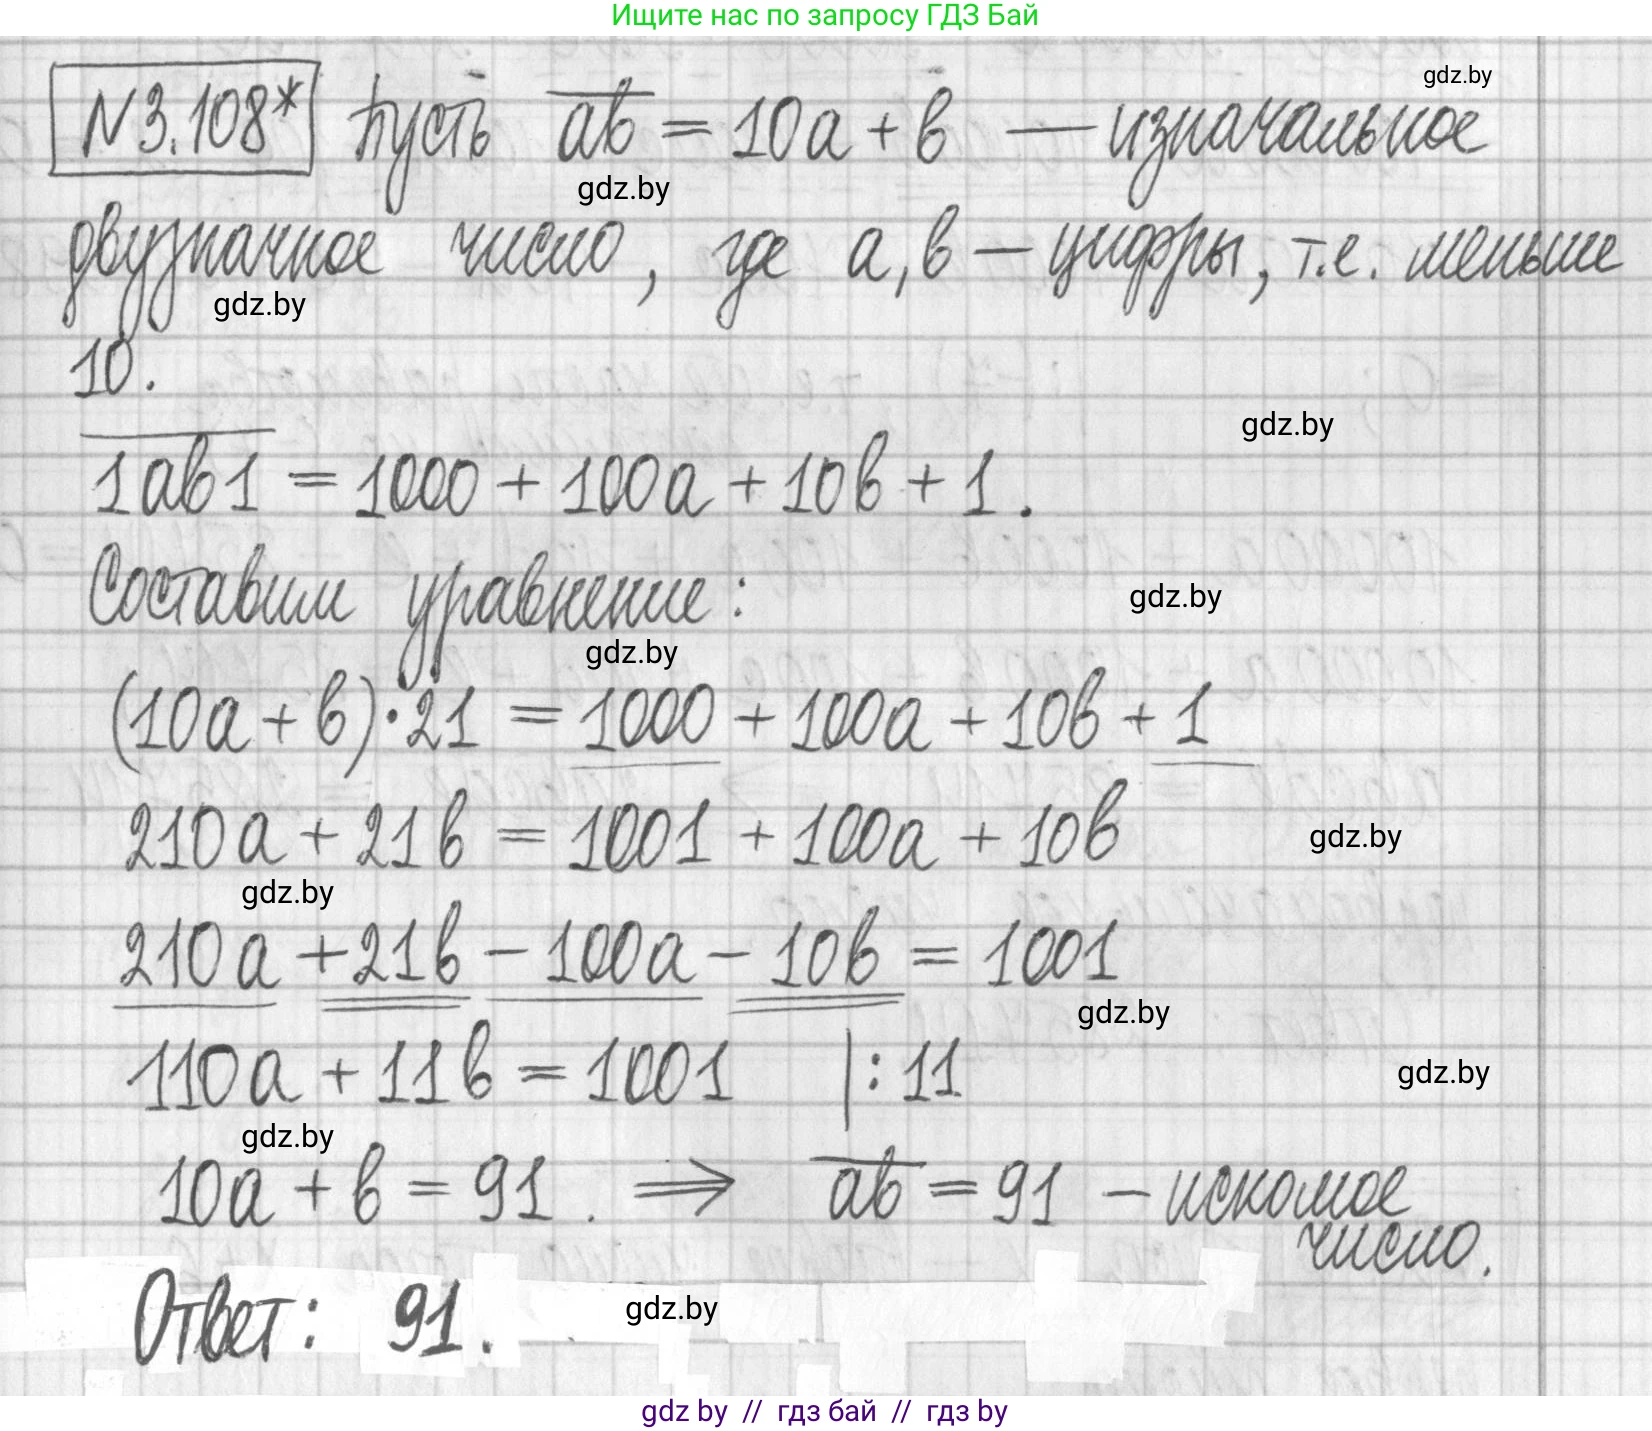 Ищите нас по запросу ГДЗ Бай
gdz.by
N3.108* Пусть ab = 10a + b — изначальное
gdz.by
двузначное число, где a, b — цифры, т.е. меньше
gdz.by
10.
gdz.by
1ab1 = 1000 + 100a + 10b + 1.
Составим уравнение:
gdz.by
gdz.by
(10a + b)·21 = 1000 + 100a + 10b + 1
210a + 21b = 1001 + 100a + 10b
gdz.by
gdz.by
210a + 21b - 100a - 10b = 1001
gdz.by
110a + 11b = 1001 | : 11
gdz.by
gdz.by
10a + b = 91. ⇒ ab = 91 - искомое
число.
Ответ: 91.
gdz.by
gdz by // гдз бай // гдз by